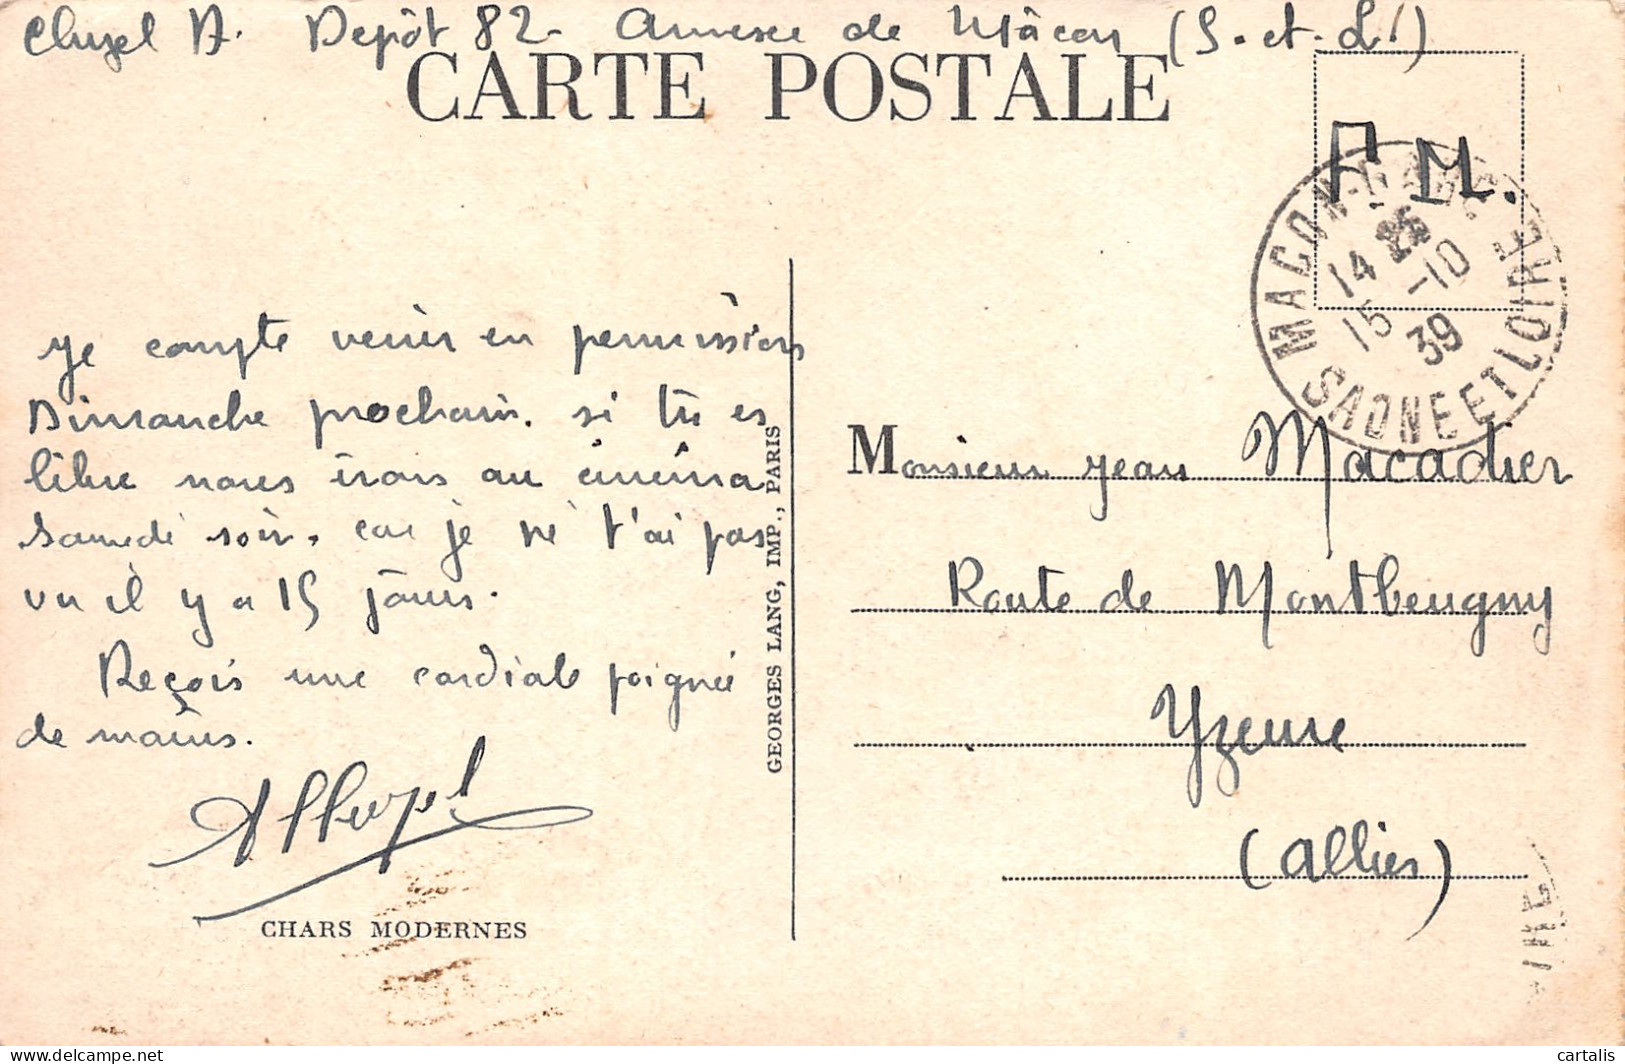 Cluzel A. Depôt 82 - Annexe de Mâcon (S.-et-L.)
CARTE POSTALE
F. M.
MACON-GARE
14
15 -10
39
SAONE ET LOIRE
Je compte venir en permissions
Dimanche prochain. si tu es
libre nous irons au cinéma
Samedi soir. car je ne t'ai pas
vu il y a 15 jours.
Reçois une cordiale poignée
de mains.
ACluzel
CHARS MODERNES
GEORGES LANG, IMP., PARIS
Monsieur Jean Macadier
Route de Montbeugny
Yzeure
(Allier)
cartalis
delcampe.net